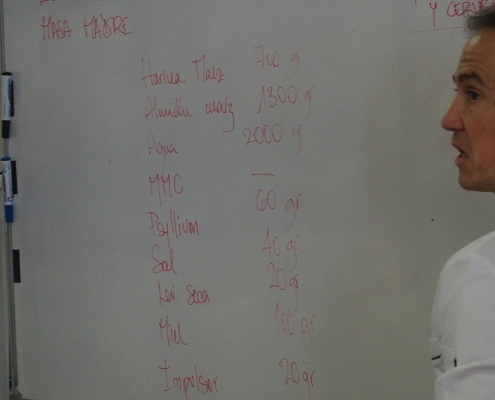 MASA MADRE
Y CERVE
Harina Maiz 700 gr
Almidón maiz 1300 gr
Agua 2000 gr
MMC —
Psyllium 60 gr
Sal 40 gr
Lev. Seca 20 gr
Miel 100 gr
Impulsor 20 gr